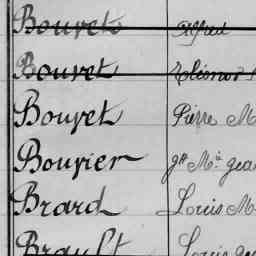 Bouvets Alfred
Bouvet Eléonor
Bouvet Pierre M
Bouvier Jn Mie Jea
Brard Louis M
Brault Louis